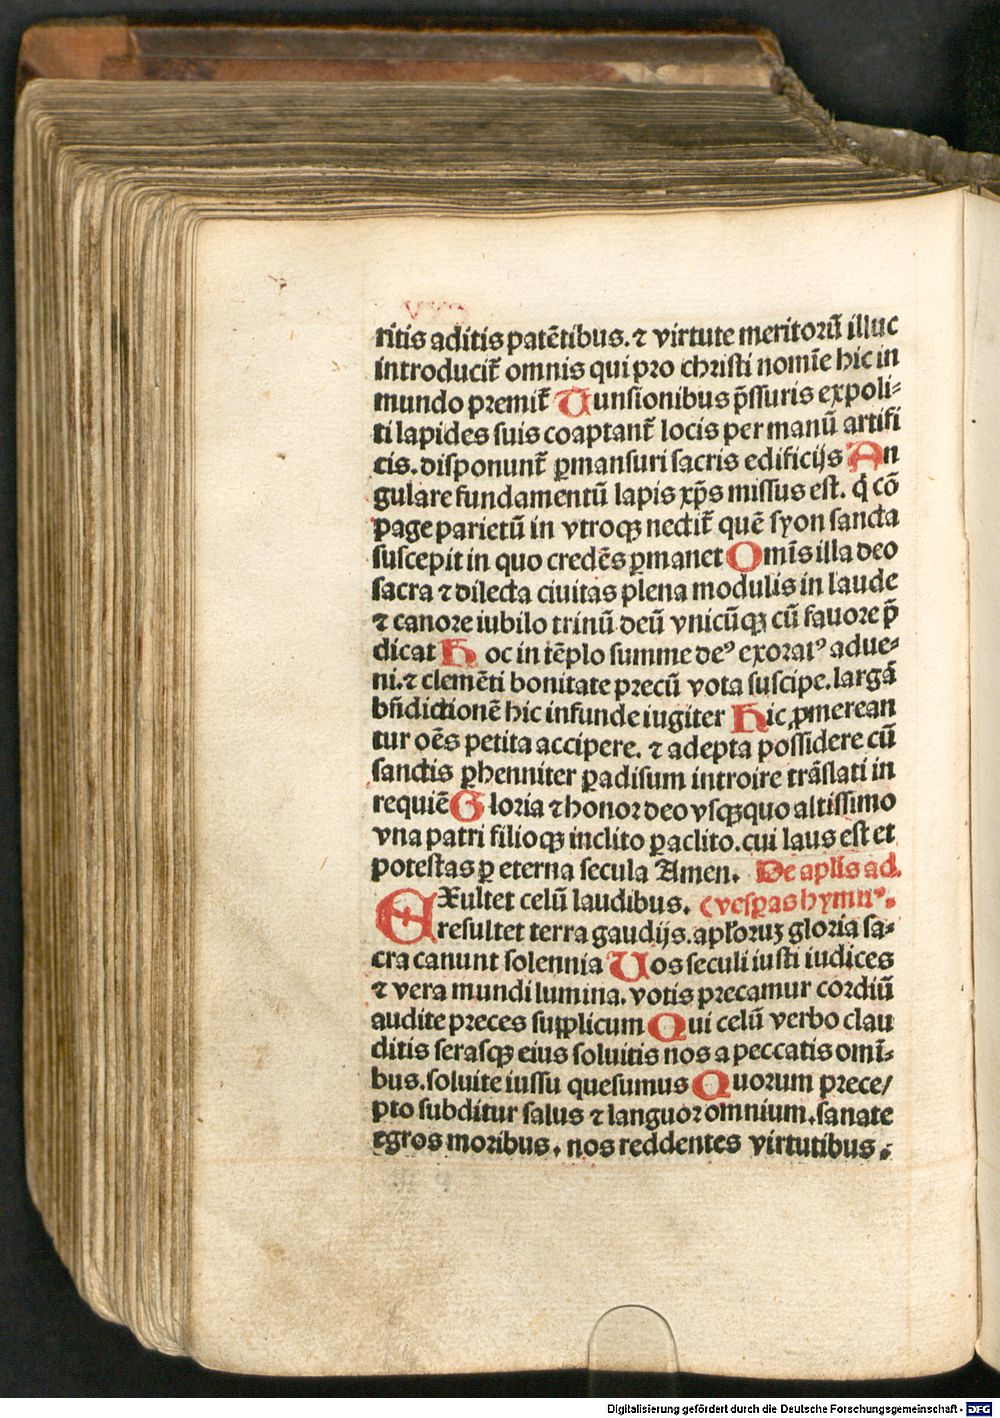 rītis aditis patētibus. ⁊ virtute meritorū illuc
introducit̄ omnis qui pro christi nomīe hic in
mundo premit̄ Tunsionibus p̄ssuris expoli⸗
ti lapides suis coaptant̄ locis per manū artifi
cis. disponunt̄ ꝑmansuri sacris edificijs An
gulare fundamentū lapis xp̄s missus est. q̇ cō
page parietū in vtroqꝫ nectit̄ quē syon sancta
suscepit in quo credēs ꝑmanet Omīs illa deo
sacra ⁊ dilecta ciuitas plena modulis in laude
⁊ canore iubilo trinū deū vnicūqꝫ cū fauore p̄
dicat Hoc in tēplo summe deꝰ exoratꝰ adue⸗
ni. ⁊ clemēti bonitate precū vota suscipe. largā
bn̄dictionē hic infunde iugiter Hic ꝓmerean
tur oēs petita accipere. ⁊ adepta possidere cū
sanctis ꝑhenniter ꝑadisum introire trāslati in
requiē Gloria ⁊ honor deo vsqꝫquo altissimo
vna patri filioqꝫ inclito ꝑaclito. cui laus est et
potestas ꝑ eterna secula Amen. De apl̄is ad.
EXultet celū laudibus. (vesꝑas hymnꝰ.
resultet terra gaudijs. apl̄oruꝫ gloria sa⸗
cra canunt solennia Uos seculi iusti iudices
⁊ vera mundi lumina. votis precamur cordiū
audite preces supplicum Qui celū verbo clau
ditis serasqꝫ eius soluitis nos a peccatis omī⸗
bus. soluite iussu quesumus Quorum prece/
pto subditur salus ⁊ languor omnium. sanate
egros moribus. nos reddentes virtutibus.
Digitalisierung gefördert durch die Deutsche Forschungsgemeinschaft - DFG